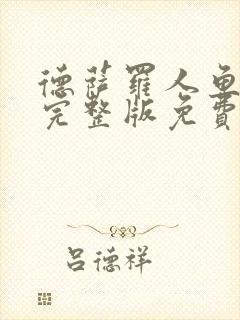 德薩羅人魚
完整版免費
呂德祥